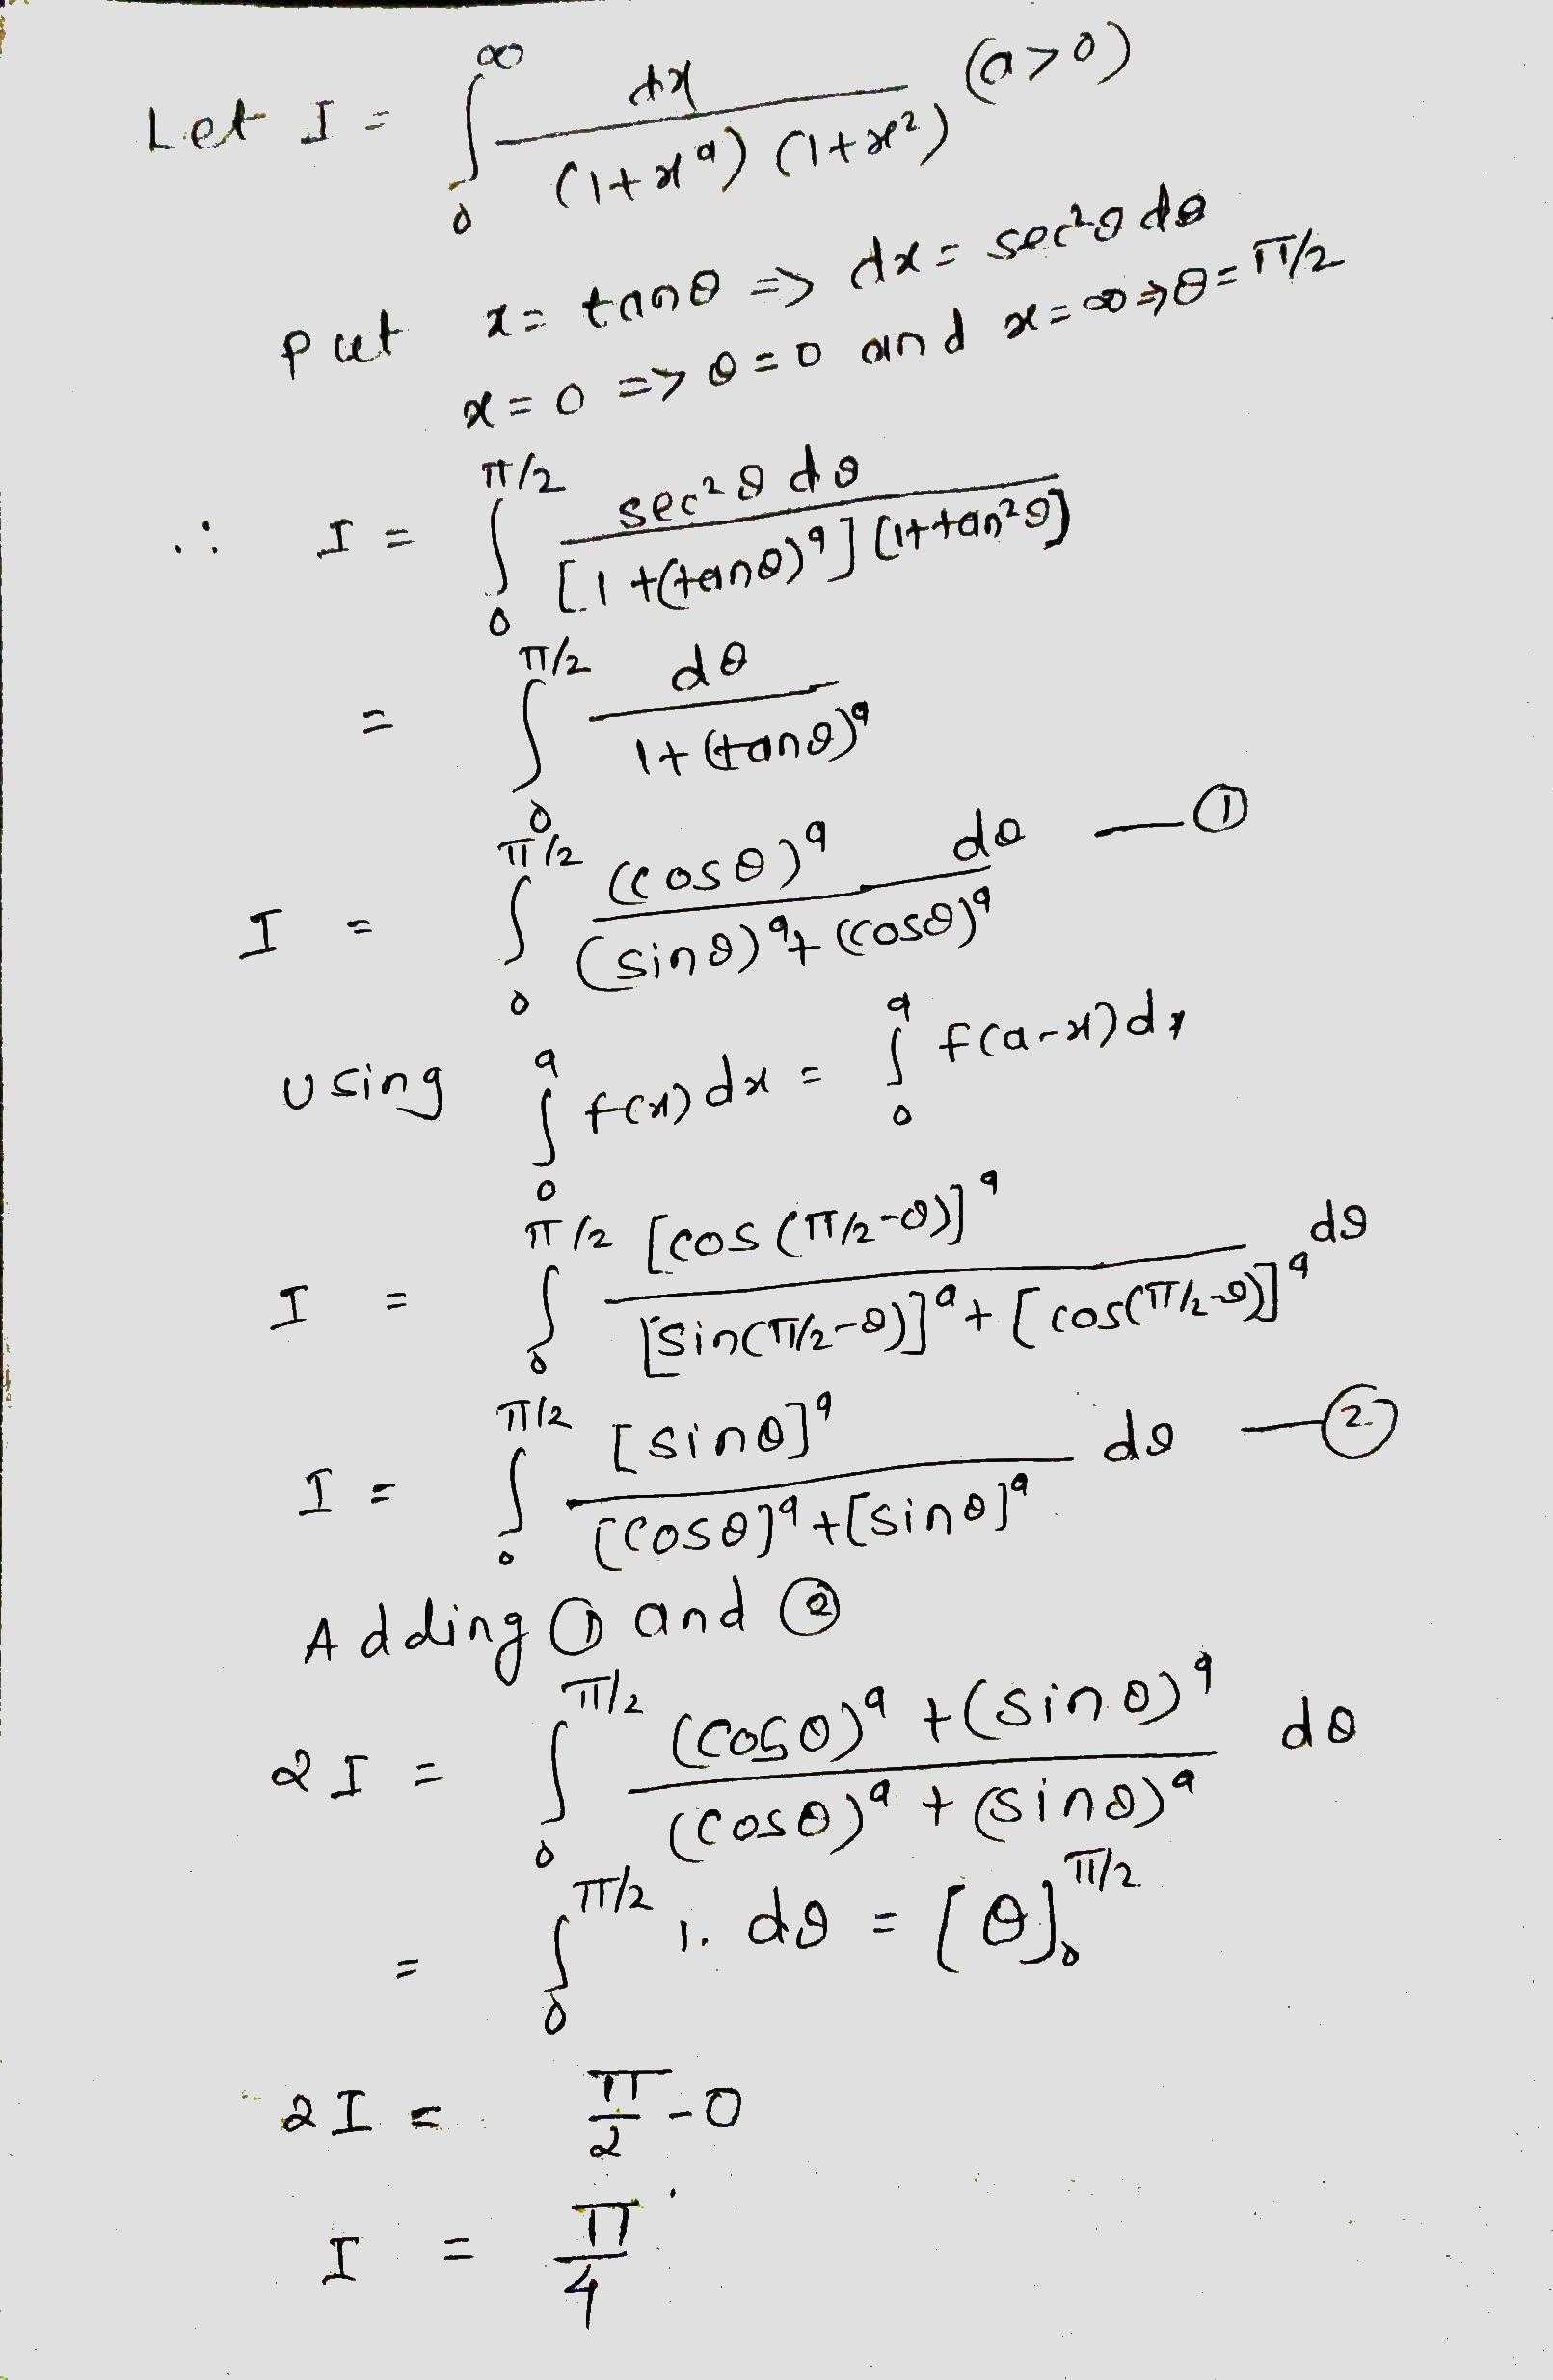 Let I = ∫₀^∞ dx / (1+x^a) (1+x²) (a>0)
put x = tanθ => dx = sec²θ dθ
x = 0 => θ = 0 and x = ∞ => θ = π/2
∴ I = ∫₀^{π/2} sec²θ dθ / [1+(tanθ)^a] [1+tan²θ]
= ∫₀^{π/2} dθ / 1+(tanθ)^a
I = ∫₀^{π/2} (cosθ)^a / (sinθ)^a + (cosθ)^a dθ — ①
Using ∫₀^a f(x) dx = ∫₀^a f(a-x) dx
I = ∫₀^{π/2} [cos(π/2-θ)]^a / [sin(π/2-θ)]^a + [cos(π/2-θ)]^a dθ
I = ∫₀^{π/2} [sinθ]^a / [cosθ]^a + [sinθ]^a dθ — ②
Adding ① and ②
2I = ∫₀^{π/2} (cosθ)^a + (sinθ)^a / (cosθ)^a + (sinθ)^a dθ
= ∫₀^{π/2} 1. dθ = [θ]₀^{π/2}
2I = π/2 - 0
I = π/4